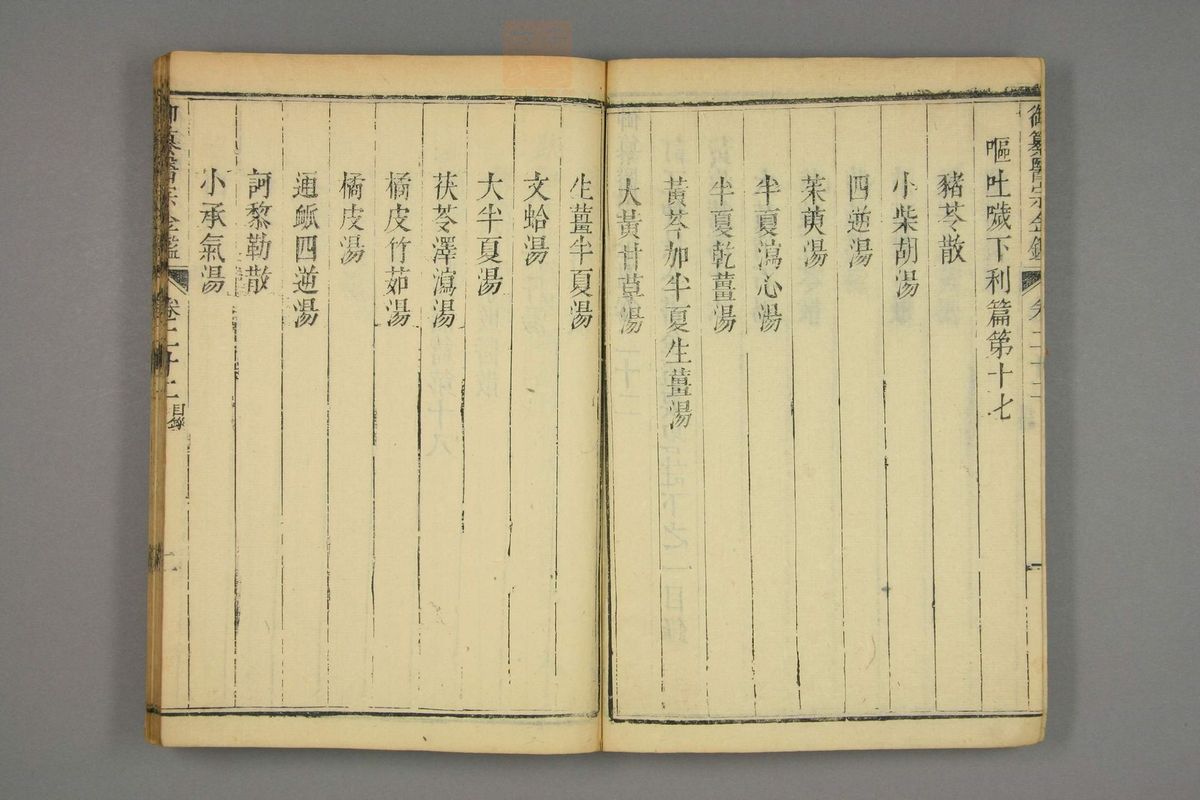 御纂醫宗金鑑
卷二十二
一
嘔吐噦下利篇第十七
豬苓散
小柴胡湯
四逆湯
茱萸湯
半夏瀉心湯
半夏乾薑湯
黃芩加半夏生薑湯
大黃甘草湯
生薑半夏湯
文蛤湯
大半夏湯
茯苓澤瀉湯
橘皮竹茹湯
橘皮湯
通䘐四逆湯
訶黎勒散
小承氣湯
御纂醫宗金鑑
卷二十二
目錄
二